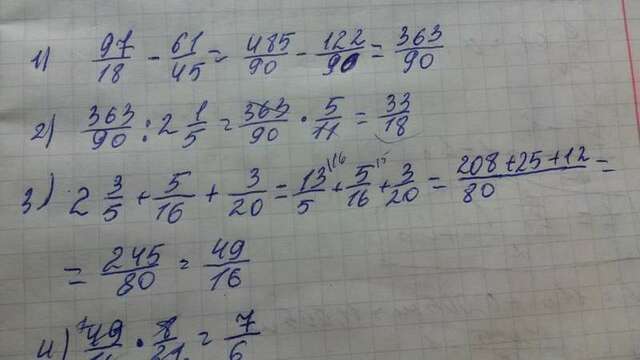 1) 97/18 - 61/45 = 485/90 - 122/90 = 363/90
2) 363/90 : 2 1/5 = 363/90 · 5/11 = 33/18
3) 2 3/5 + 5/16 + 3/20 = 13/5 + 5/16 + 3/20 = (208+25+12)/80 =
= 245/80 = 49/16
4) 49/ · 8/21 = 7/6